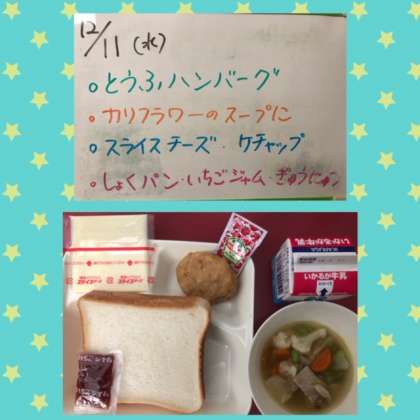 12/11(水)
○とうふハンバーグ
○カリフラワーのスープに
○スライスチーズ・ケチャップ
○しょくパン・いちごジャム・ぎゅうにゅう
いかるが牛乳
いかるが牛乳